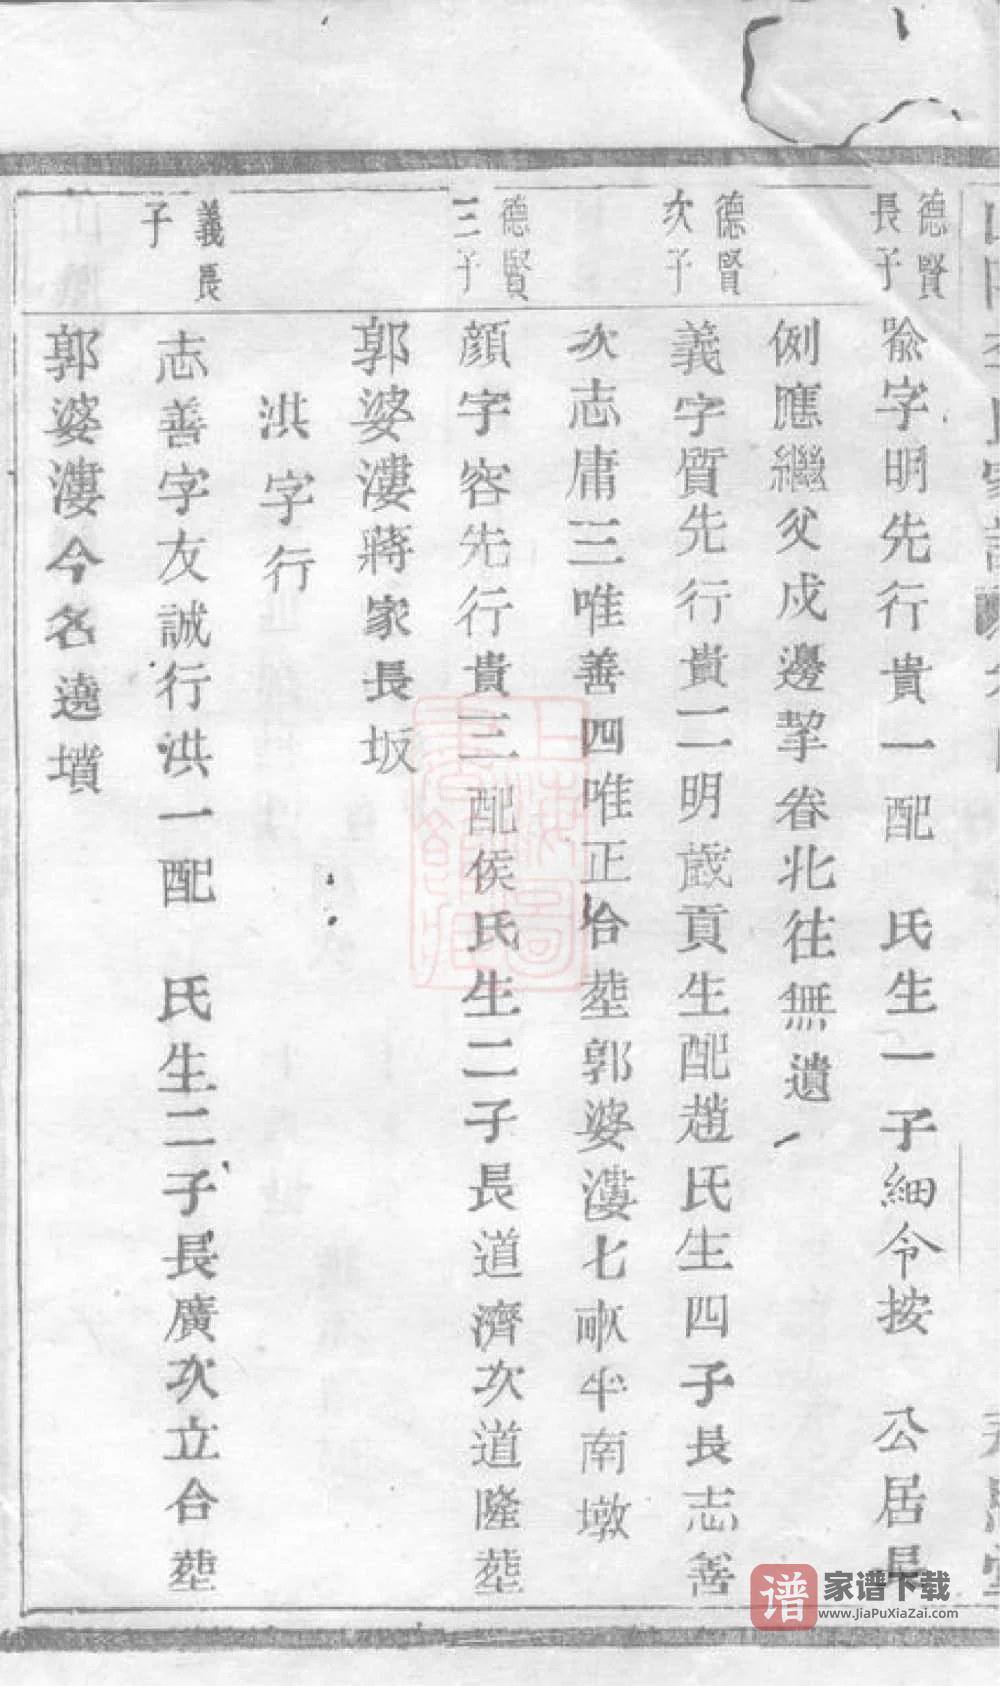 德賢長子
喩字明先行貴一配　氏生一子細令按　公居長
例應繼父戍邊挈眷北往無遺
德賢次子
義字質先行貴二明歲貢生配趙氏生四子長志善
次志庸三唯善四唯正合塟郭婆漊七畝半南墩
德賢三子
顔字容先行貴三配侯氏生二子長道濟次道隆塟
郭婆漊蔣家長坂
洪字行
義長子
志善字友誠行洪一配　氏生二子長廣次立合塟
郭婆漊今名遶墳
上海圖
家谱下载
www.JiaPuXiaZai.com